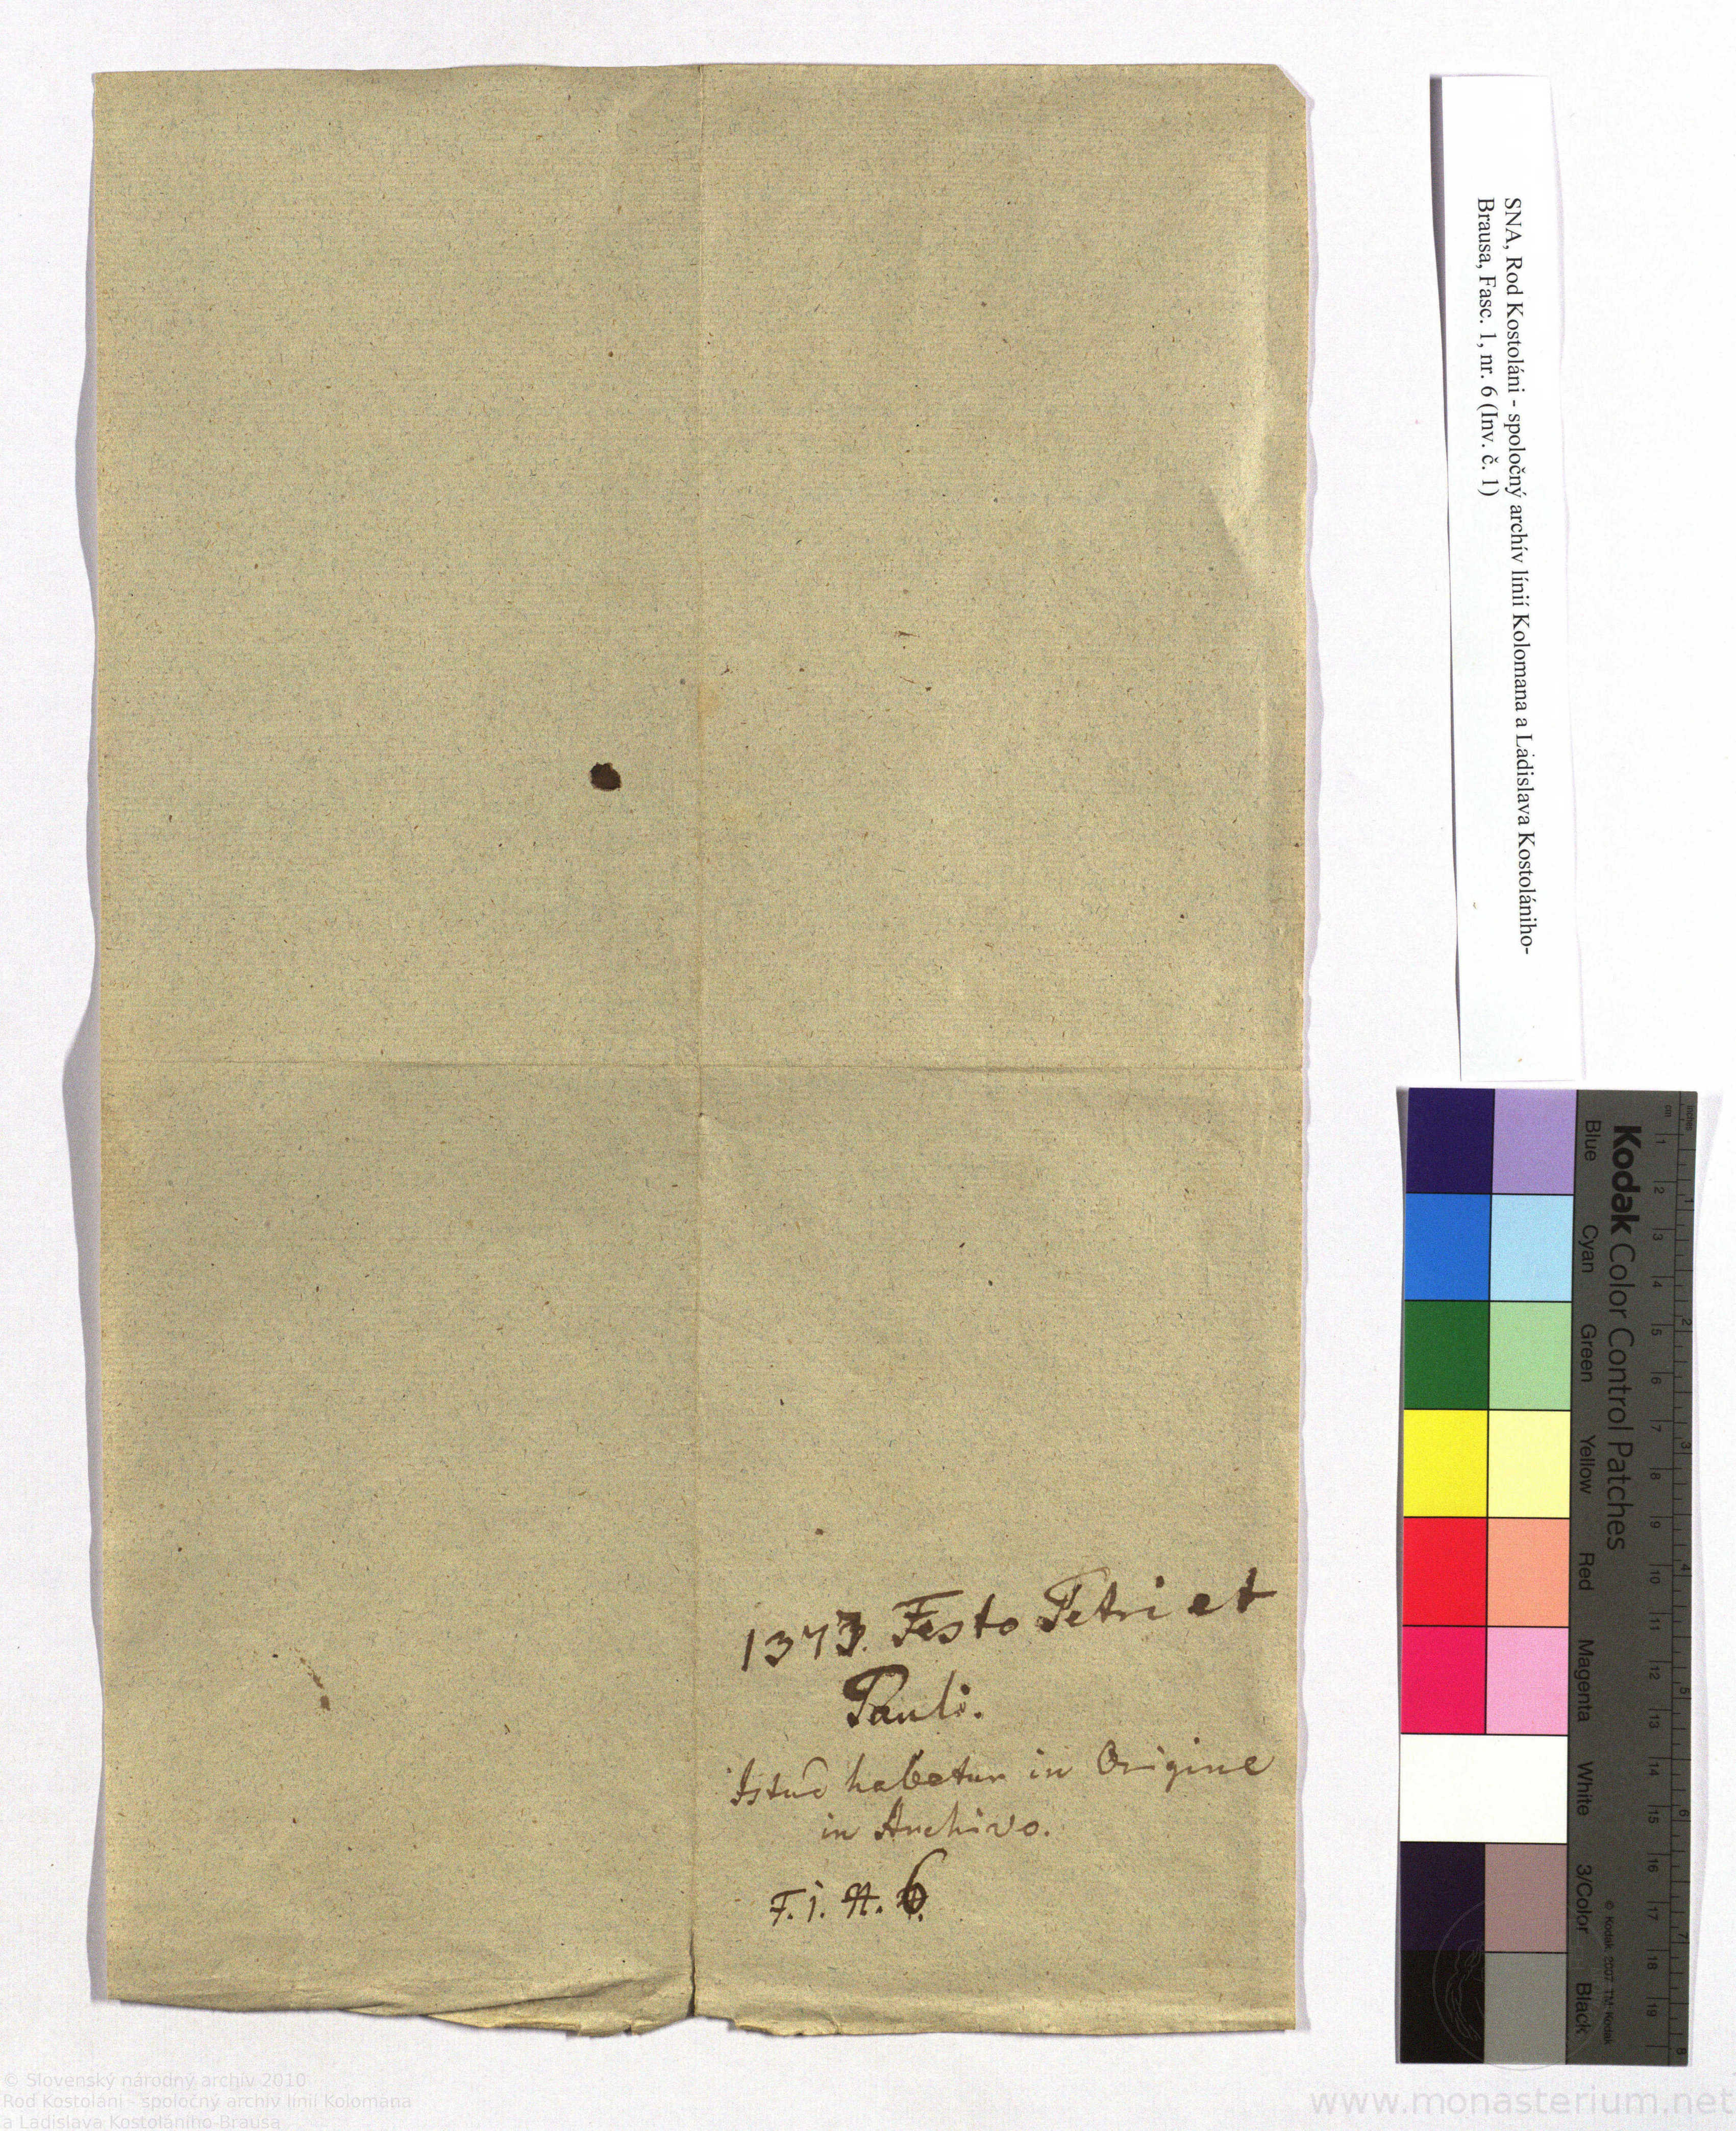 1373. Festo Petri et
Pauli.
Istud habetur in Origine
in Archivo.
F. 1. N. 6.
SNA, Rod Kostoláni - spoločný archív línií Kolomana a Ladislava Kostolániho-
Brausa, Fasc. 1, nr. 6 (Inv. č. 1)
Kodak Color Control Patches
Blue Cyan Green Yellow Red Magenta White 3/Color Black
© Kodak, 2007 TM: Kodak
inches 1 2 3 4 5 6 7 8
cm 1 2 3 4 5 6 7 8 9 10 11 12 13 14 15 16 17 18 19
© Slovenský národný archív 2010
Rod Kostoláni - spoločný archív línií Kolomana
a Ladislava Kostolániho-Brausa
www.monasterium.net